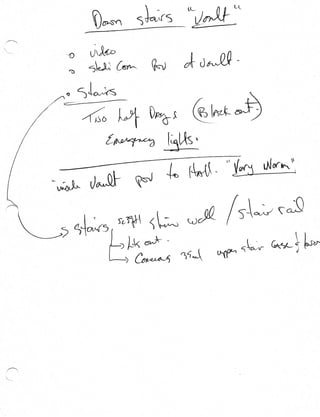 Down stairs "Vault"
o video
o Stedi Cam POV of vault.
o Stairs
Two half Days (Black out)
Emergency lights.
inside vault pov to Hall. "Very Worm"
Stairs, show wall / stair rail
→ out.
→ Cameras 35ml upper stair case &